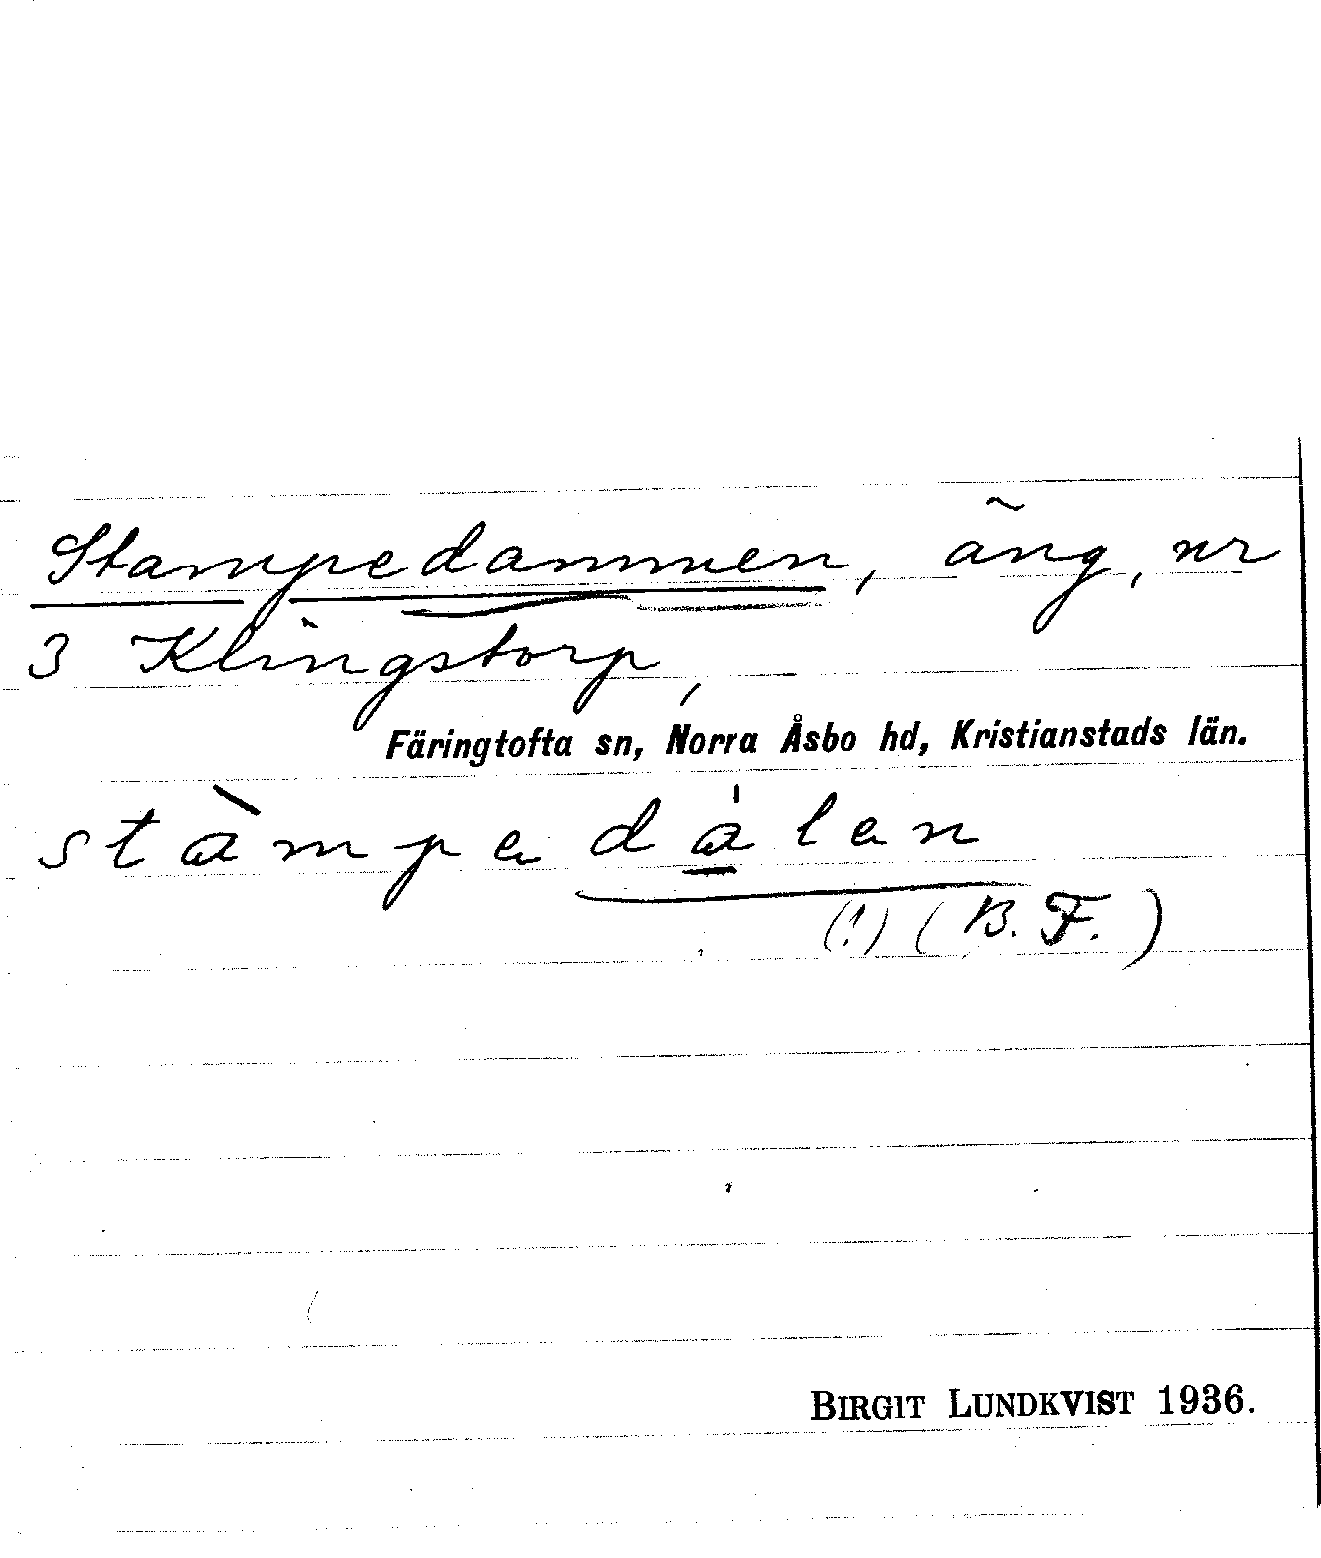 Stampedammen, äng, nr
3 Klingstorp,
Färingtofta sn, Norra Åsbo hd, Kristianstads län.
stàmpe dálen
(!) (B. F.)
BIRGIT LUNDKVIST 1936.